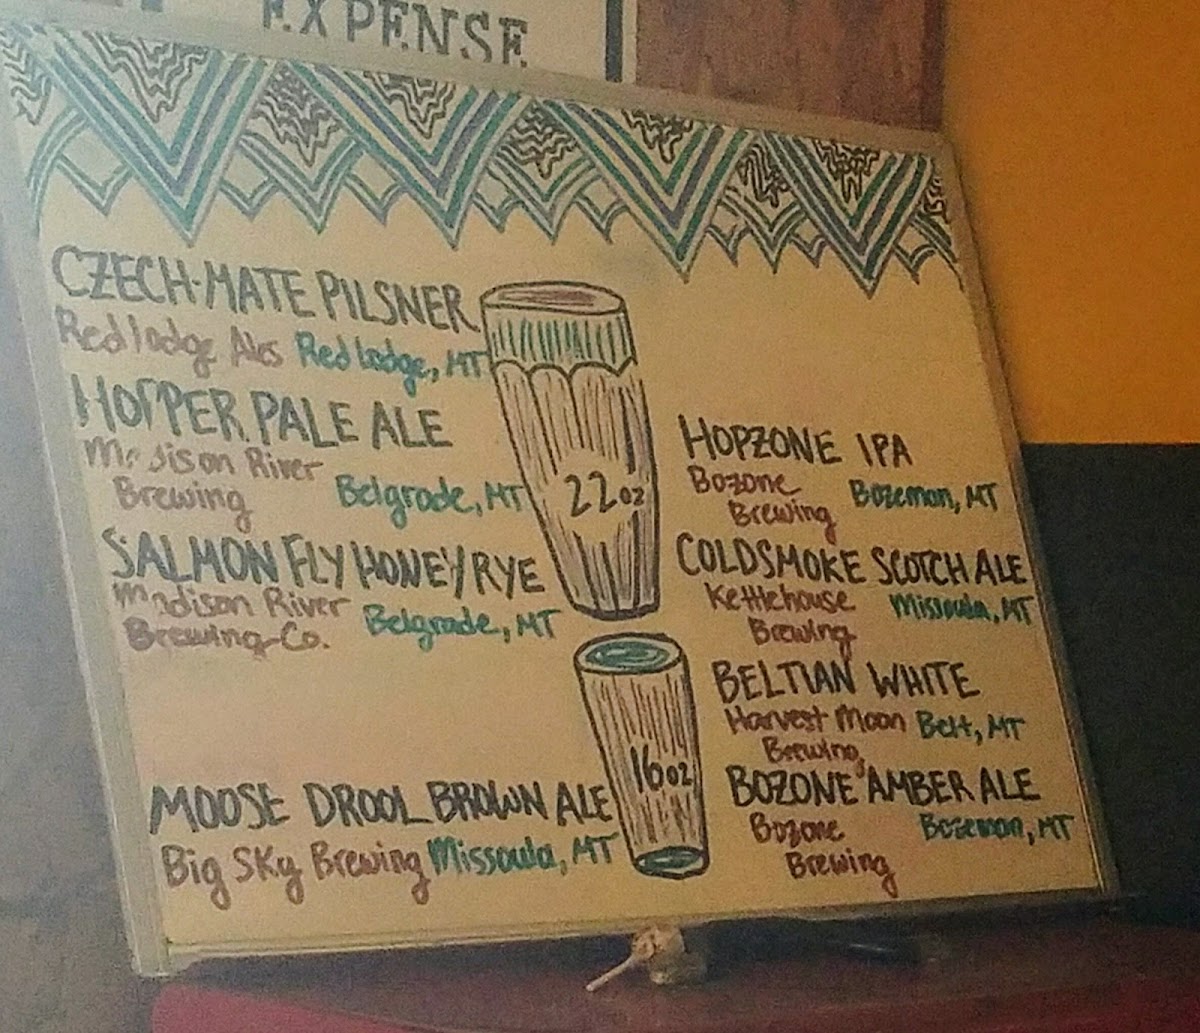 EXPENSE
CZECH-MATE PILSNER
Red lodge Ales Red Lodge, MT
HOPPER PALE ALE
Madison River
Brewing Belgrade, MT
SALMON FLY HONEY RYE
Madison River
Brewing Co. Belgrade, MT
MOOSE DROOL BROWN ALE
Big Sky Brewing Missoula, MT
22oz
16oz
HOPZONE IPA
Bozone Bozeman, MT
Brewing
COLDSMOKE SCOTCH ALE
Kettlehouse Missoula, MT
Brewing
BELTIAN WHITE
Harvest Moon Belt, MT
Brewing
BOZONE AMBER ALE
Bozone Bozeman, MT
Brewing